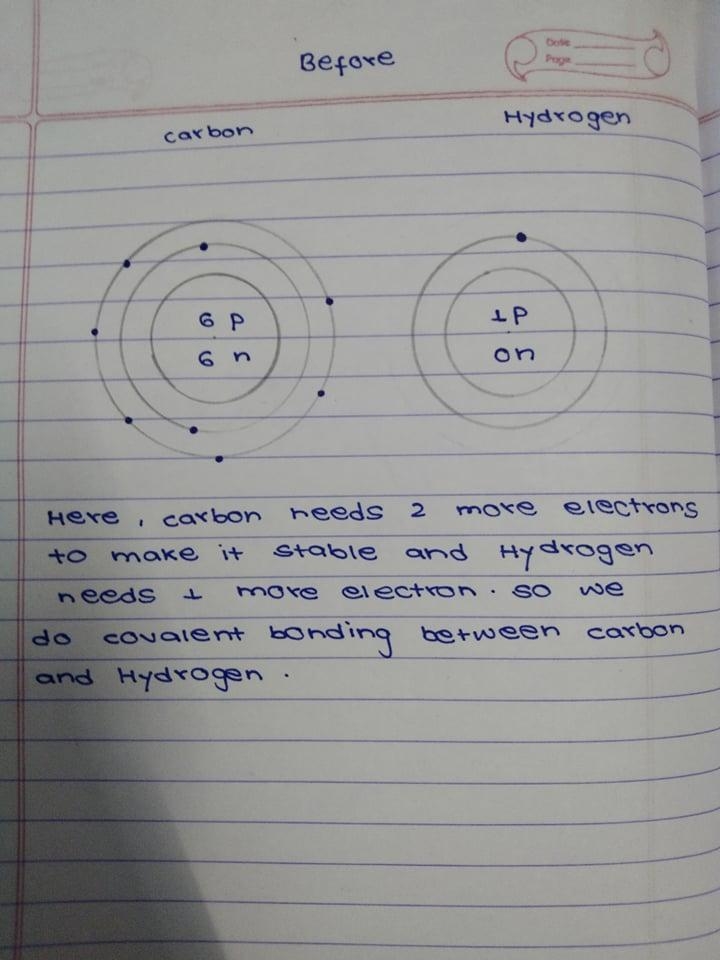 Before
Date
Page
carbon
Hydrogen
6 p
6 n
1P
0n
Here, carbon needs 2 more electrons
to make it stable and Hydrogen
needs 1 more electron. so we
do covalent bonding between carbon
and Hydrogen.